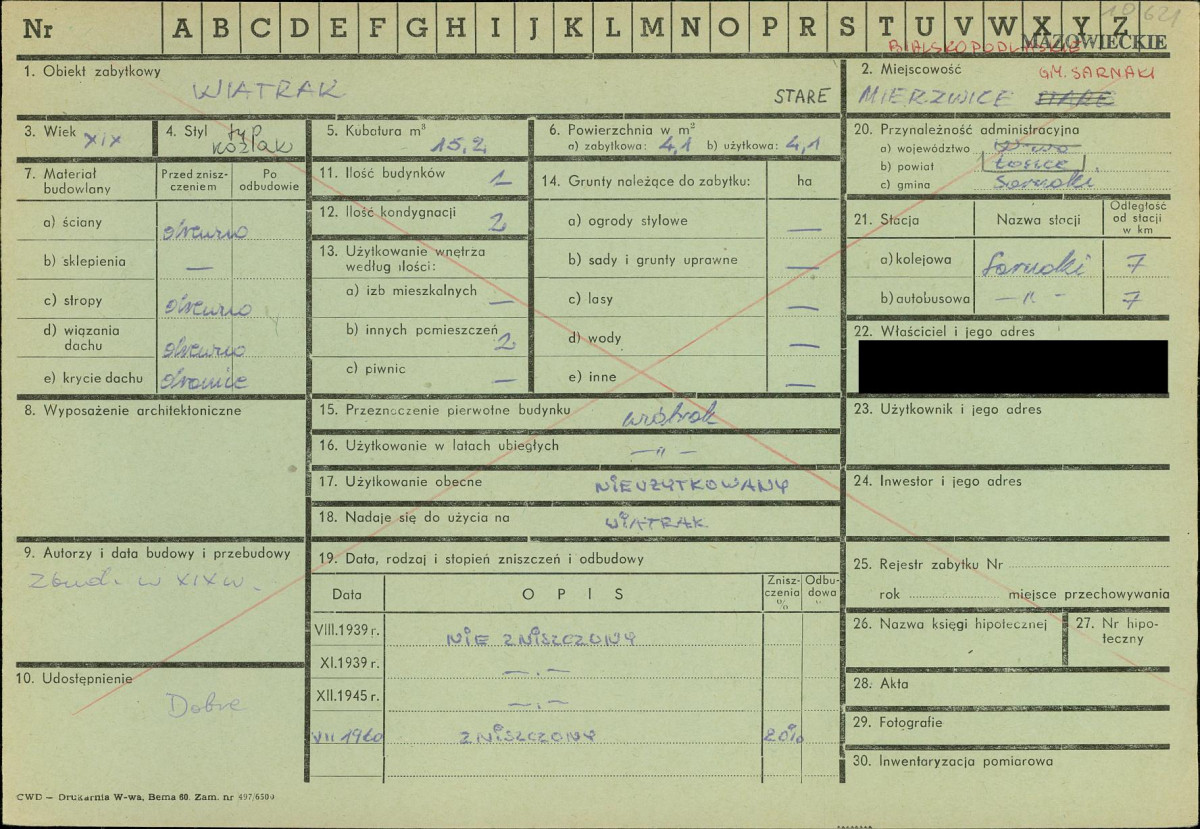 Nr A B C D E F G H I J K L M N O P R S T U V W X Y Z
10621
BIALSKOPODLASKIE
MAZOWIECKIE
1. Obiekt zabytkowy
WIATRAK
STARE
2. Miejscowość
GM. SARNAKI
MIERZWICE STARE
3. Wiek XIX
4. Styl typ
koźlak
5. Kubatura m³
15,2
6. Powierzchnia w m²
a) zabytkowa: 4,1 b) użytkowa: 4,1
7. Materiał budowlany
Przed znisz-
czeniem
Po
odbudowie
a) ściany drewno
b) sklepienia —
c) stropy drewno
d) wiązania
dachu drewno
e) krycie dachu dranice
8. Wyposażenie architektoniczne
9. Autorzy i data budowy i przebudowy
Zbud. w XIX w.
10. Udostępnienie
Dobre
11. Ilość budynków 1
12. Ilość kondygnacji 2
13. Użytkowanie wnętrza
według ilości:
a) izb mieszkalnych —
b) innych pomieszczeń 2
c) piwnic —
14. Grunty należące do zabytku: ha
a) ogrody stylowe —
b) sady i grunty uprawne —
c) lasy —
d) wody —
e) inne —
15. Przeznaczenie pierwotne budynku wiatrak
16. Użytkowanie w latach ubiegłych —"—
17. Użytkowanie obecne NIEUŻYTKOWANY
18. Nadaje się do użycia na WIATRAK
19. Data, rodzaj i stopień zniszczeń i odbudowy
Data
OPIS
Znisz-
czenia
%
Odbu-
dowa
VIII.1939 r. NIE ZNISZCZONY
XI.1939 r. —.—
XII.1945 r. —.—
VII 1960 ZNISZCZONY 20%
20. Przynależność administracyjna
a) województwo W-wa
b) powiat Łosice
c) gmina Sarnaki
21. Stacja
Nazwa stacji
Odległość
od stacji
w km
a) kolejowa Sarnaki 7
b) autobusowa —"— 7
22. Właściciel i jego adres
23. Użytkownik i jego adres
24. Inwestor i jego adres
25. Rejestr zabytku Nr
rok miejsce przechowywania
26. Nazwa księgi hipotecznej
27. Nr hipo-
teczny
28. Akta
29. Fotografie
30. Inwentaryzacja pomiarowa
CWD — Drukarnia W-wa, Bema 60. Zam. nr 497/6509